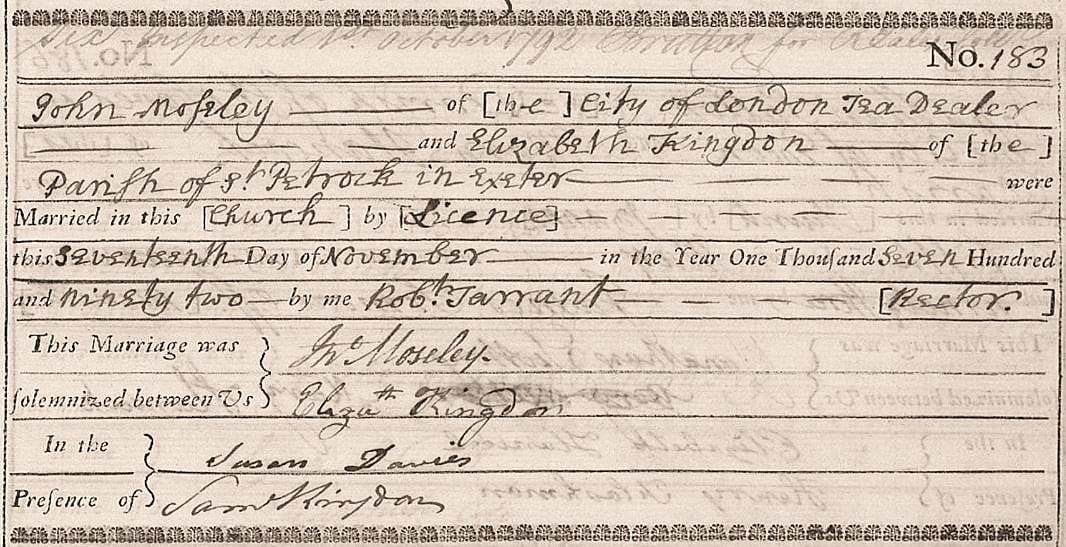 Six Inspected 1st October 1792 for
No. 183
John Moſeley of [the] City of London Tea Dealer
and Elizabeth Kingdon of [the]
Pariſh of St. Petrock in Exeter were
Married in this [Church] by [Licence]
this Seventeenth Day of November in the Year One Thouſand Seven Hundred
and ninety two by me Robt. Tarrant [Rector.]
This Marriage was Jno. Moseley.
ſolemnized between Us Elizath Kingdon
In the Susan Davies
Preſence of Saml Kingdon